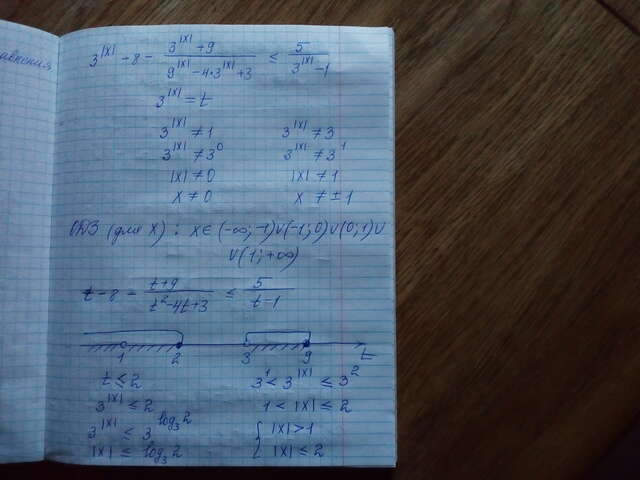 авнения
3^|x| - 8 - (3^|x| + 9)/(9^|x| - 4·3^|x| + 3) ≤ 5/(3^|x| - 1)
3^|x| = t
3^|x| ≠ 1 3^|x| ≠ 3
3^|x| ≠ 3^0 3^|x| ≠ 3^1
|x| ≠ 0 |x| ≠ 1
x ≠ 0 x ≠ ±1
ОДЗ (для x) : x ∈ (-∞; -1)∪(-1; 0)∪(0; 1)∪
∪(1; +∞)
t - 8 - (t + 9)/(t² - 4t + 3) ≤ 5/(t - 1)
1 2 3 9 t
t ≤ 2 3^1 < 3^|x| ≤ 3^2
3^|x| ≤ 2 1 < |x| ≤ 2
3^|x| ≤ 3^log₃2 { |x| > 1
|x| ≤ log₃2 |x| ≤ 2